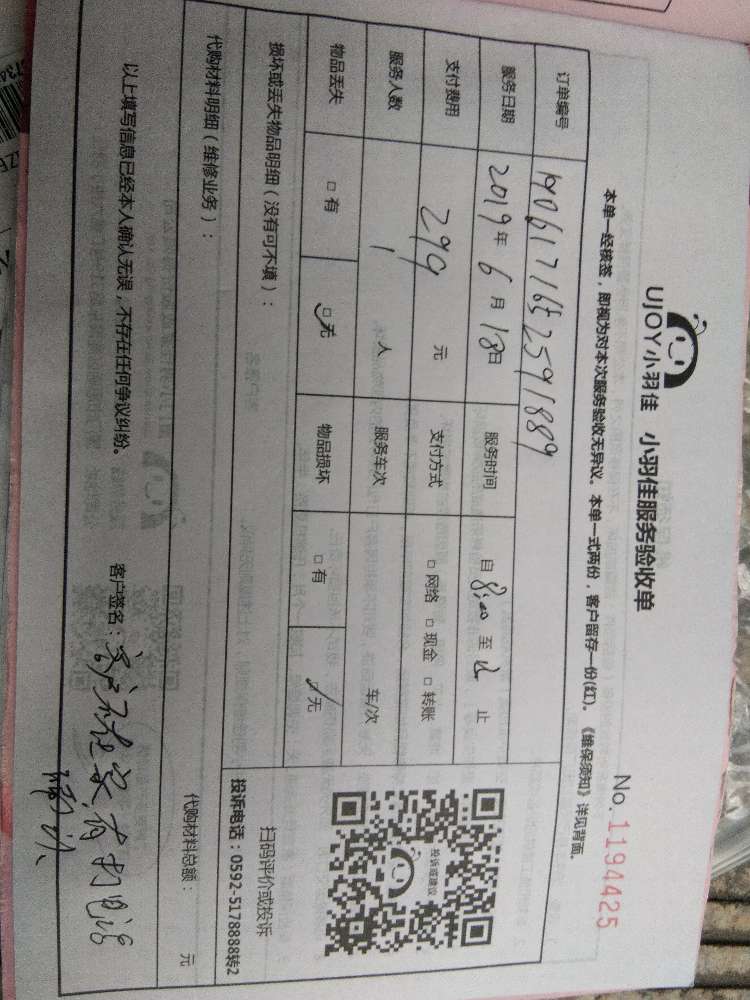 UJOY小羽佳 小羽佳服务验收单
No.1194425
本单一经核签，即视为对本次服务验收无异议。本单一式两份，客户留存一份(红)。《维保须知》详见背面。
订单编号
服务日期 2019年6月18日 服务时间 自8:00至12止
支付费用 299元 支付方式 □网络 □现金 □转账
服务人数 1人 服务车次 车/次
物品丢失 □有 □无 物品损坏 □有 □无
损坏或丢失物品明细（没有可不填）：
扫码评价或投诉
投诉或建议
投诉电话：0592-5178888转2
代购材料明细（维修业务）： 代购材料总额： 元
以上填写信息已经本人确认无误，不存在任何争议纠纷。 客户签名：客户不在家，有打电话
确认